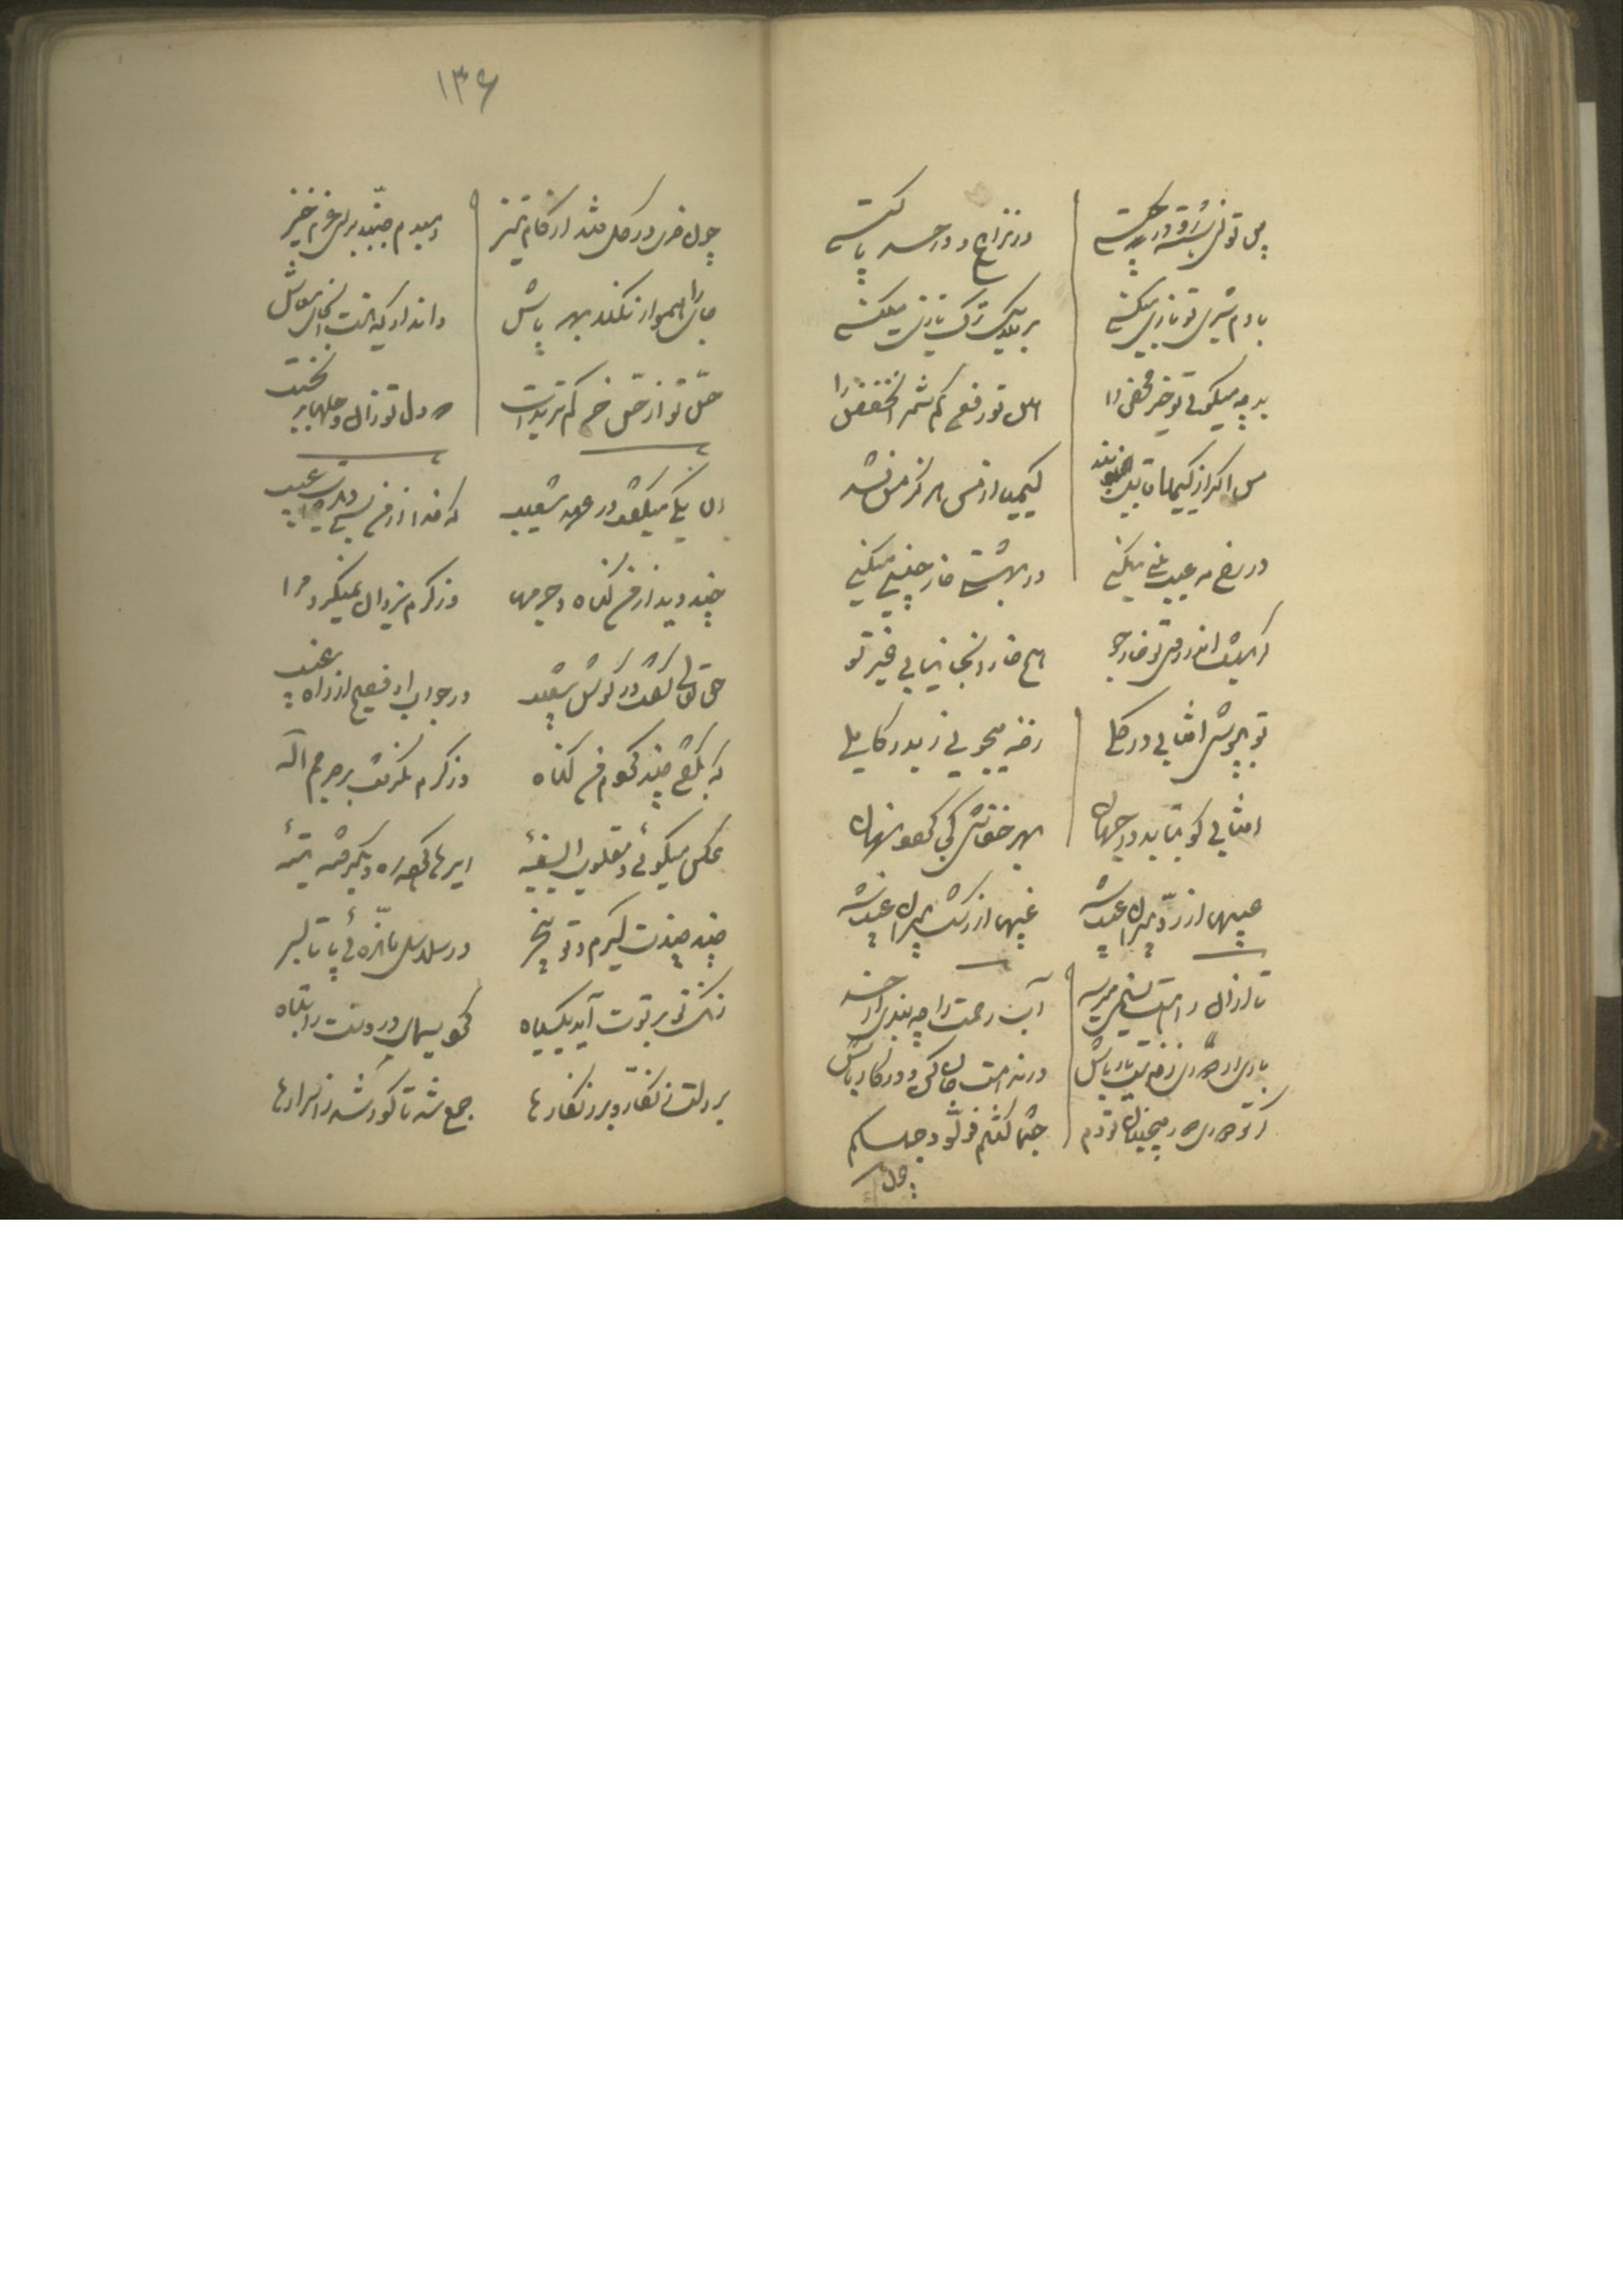 در نزاع و در حسد با کیستی
با دم شیری تو بازی میکنی
بر ملایک ترک تازی میکنی
بد چه میگوئی تو خیر محض را
هین ترفع کم شمر آن خفض را
مس اگر از کیمیا قابل نبد
کیمیا از مس هرگز مس نشد
در رخ مه عیب بینی میکنی
در بهشتی خار چینی میکنی
گر بهشت اندر روی تو خار جو
هیچ خار آنجا نیابی غیر تو
می بپوشی آفتابی در گلی
رخنه میجوئی ز بدر کاملی
آفتابی کو بتابد در جهان
بهر خفاشی کجا گردد نهان
عیبها از رد پیران عیب شد
غیبها از رشک پیران غیب شد
آب رحمت را چه بندی از حسد
گر تو دوری دور میجنبان تو دم
حیثما کنتم فولوا وجهکم
چون
۱۳۶
چون خری در گل فتد از گام تیز
دمبدم جنبد برای عزم خیز
جای را هموار نکند بهر باش
داند او که نیست آن جای معاش
حس تو از حس خر کمتر بدست
که دل تو زین وحلها بر نجست
آن یکی میگفت در عهد شعیب
که خدا از من بسی دیدست عیب
چند دید از من گناه و جرمها
وز کرم یزدان نمیگیرد مرا
حق تعالی گفت در گوش شعیب
در جواب او فصیح از راه غیب
که بگفتی چند کردم من گناه
وز کرم نگرفت بر جرمم اله
عکس میگوئی و مقلوب ای سفیه
ای رها کرده ره و بگرفته تیه
چند چندت گیرم و تو بیخبر
در سلاسل مانده‌ئی پا تا بسر
زنگ تو بر توت ای دیگ سیاه
کرد سیمای درونت را تباه
بر دلت زنگار بر زنگارها
جمع شد تا کور شد ز اسرارها